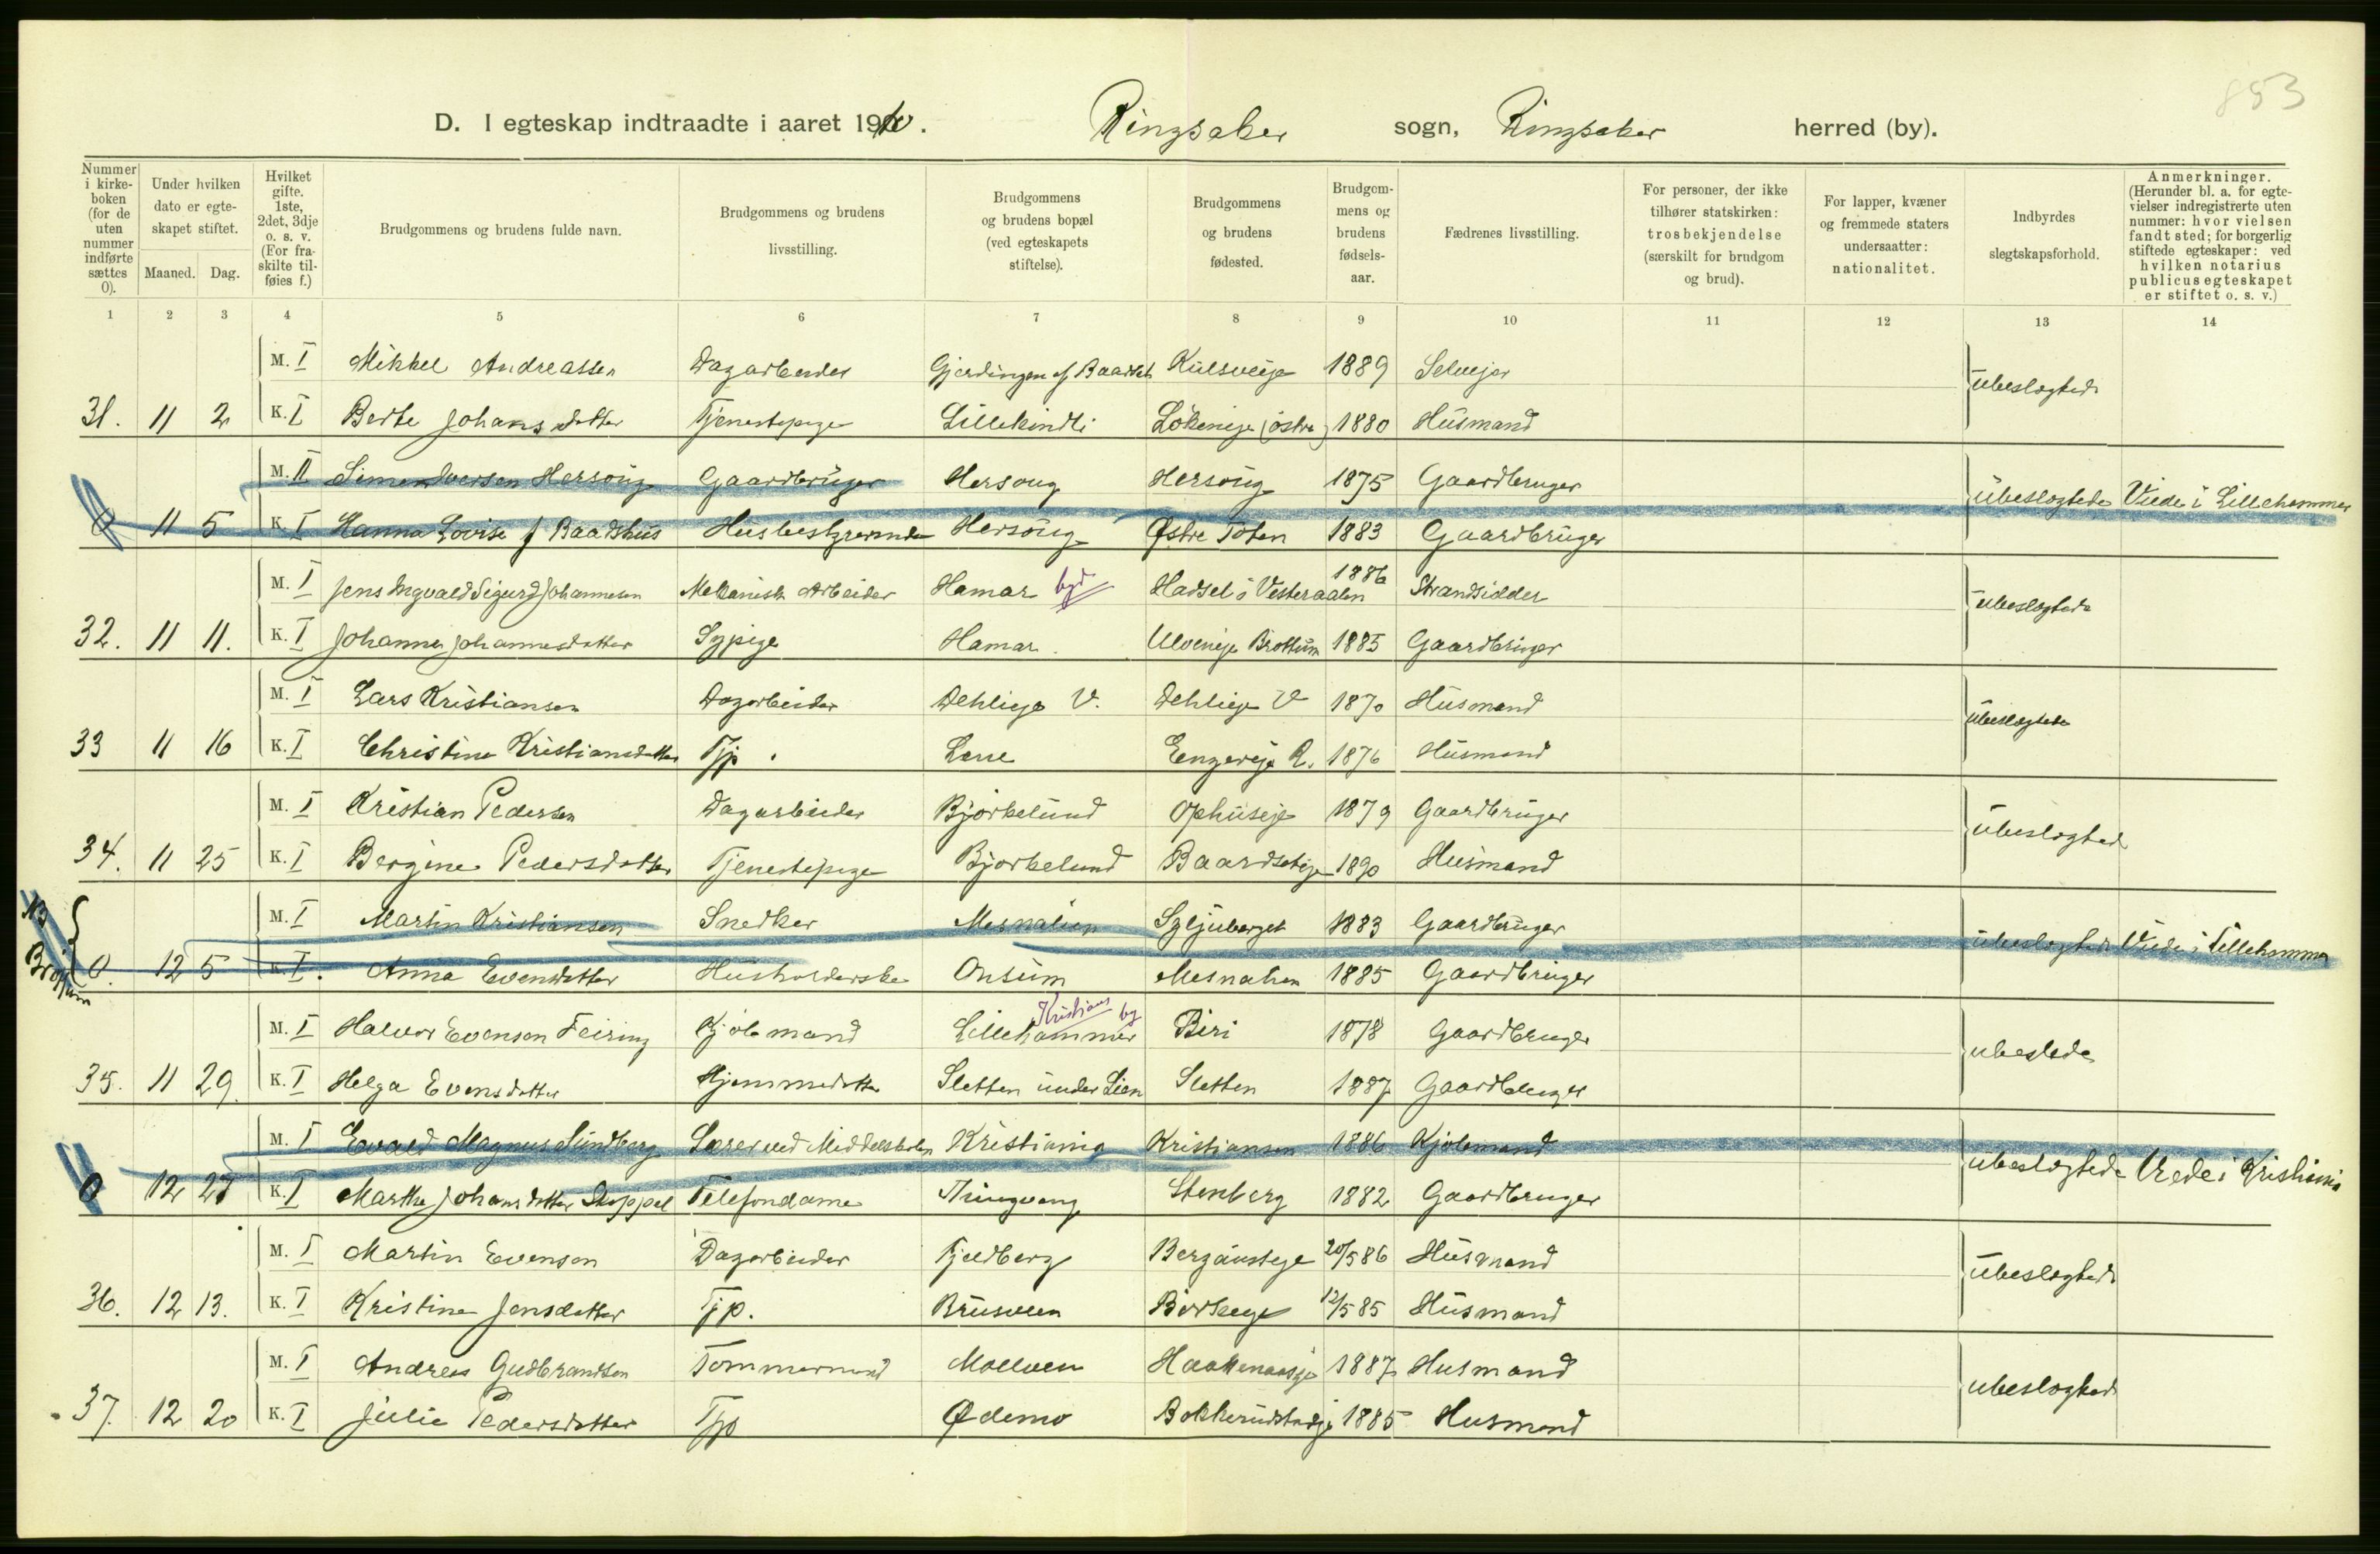 853
D. I egteskap indtraadte i aaret 1910. Ringsaker sogn, Ringsaker herred (by).
Nummer i kirke-boken (for de uten nummer indførte sættes 0).
Under hvilken dato er egte-skapet stiftet.
Maaned. Dag.
Hvilket gifte. 1ste, 2det, 3dje o. s. v. (For fra-skilte til-føies f.)
Brudgommens og brudens fulde navn.
Brudgommens og brudens livsstilling.
Brudgommens og brudens bopæl (ved egteskapets stiftelse).
Brudgommens og brudens fødested.
Brudgom-mens og brudens fødsels-aar.
Fædrenes livsstilling.
For personer, der ikke tilhører statskirken: trosbekjendelse (særskilt for brudgom og brud).
For lapper, kvæner og fremmede staters undersaatter: nationalitet.
Indbyrdes slegtskapsforhold.
Anmerkninger. (Herunder bl. a. for egte-vielser indregistrerte uten nummer: hvor vielsen fandt sted; for borgerlig stiftede egteskaper: ved hvilken notarius publicus egteskapet er stiftet o. s. v.)
1 2 3 4 5 6 7 8 9 10 11 12 13 14
M. I Mikkel Andreassen Dagarbeider 1889 Selveier ubeslegtede
31. 11 2 K. I Berte Johansdatter Tjenestepige Lillekindli 1880 Husmand
M. II Simen Iversen Hersoug Gaardbruger Hersoug Hersoug 1875 Gaardbruger ubeslegtede Viede i Lillehammer
0 11 5 K. I Hanna Lovise f Baadshus Husbestyrerinde Hersoug Østre Toten 1883 Gaardbruger
M. I Jens Ingvald Sigurd Johannesen Mekanisk Arbeider Hamar by Hadsel i Vesteraalen 1886 Strandsidder ubeslegtede
32. 11 11. K. I Johanne Johannesdatter Sypige Hamar Brøttum 1885 Gaardbruger
M. I Lars Kristiansen Dagarbeider Dehlieje V. Dehlieje V 1870 Husmand ubeslegtede
33 11 16 K. I Christine Kristiansdatter Tjp. 1876 Husmand
M. I Kristian Pedersen Dagarbeider Bjørkelund Ophuseje 1879 Gaardbruger ubeslegtede
34. 11 25 K. I Bergine Pedersdatter Tjenestepige Bjørkelund Baardseteje 1890 Husmand
NB Brøttum
M. I Martin Kristiansen Snedker Mesnalien 1883 Gaardbruger ubeslegtede Viede i Lillehammer
0. 12 5 K. I. Anna Evensdatter Husholderske Onsum Mesnalien 1885 Gaardbruger
M. I Halvor Evensen Feiring Kjøbmand Lillehammer Kristians by Biri 1878 Gaardbruger ubeslede
35. 11 29. K. I Helga Evensdatter Hjemmedatter Sletten under Lien Sletten 1887 Gaardbruger
M. I Evald Magnus Sundberg Lærer ved Middelskolen Kristiania Kristiansen 1886 Kjøbmand ubeslegtede Viede i Kristiania
0 12 27 K. I Marthe Johansdatter Skappel Telefondame Tingvang Stenberg 1882 Gaardbruger
M. I Martin Evensen Dagarbeider Fjeldberg 20/5 86 Husmand ubeslegtede
36. 12 13. K. I Kristine Jensdatter Tjp. Brusveen 12/5 85 Husmand
M. I Andreas Gudbrandsen Tømmermand Moelven 1887 Husmand ubeslegtede
37. 12 20 K. I Julie Pedersdatter Tjp Ødemo 1885 Husmand